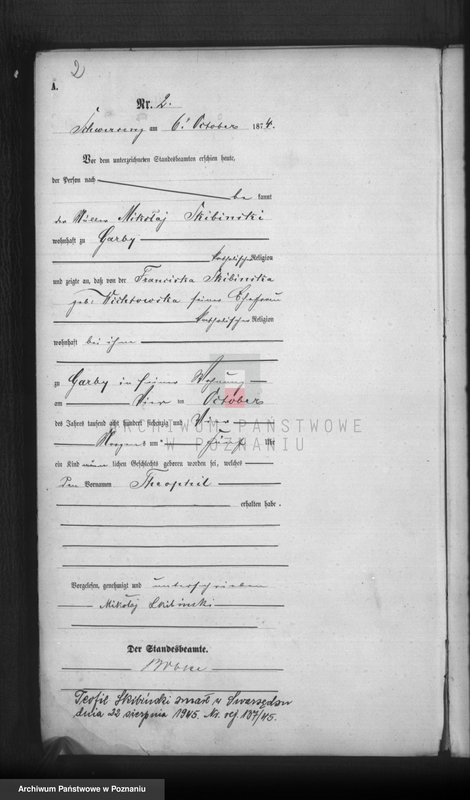 2
A.
Nr. 2.
am 6t October 1874.
Vor dem unterzeichneten Standesbeamten erschien heute,
der Person nach
be kannt
der Müller Mikołaj Skibinski
wohnhaft zu Garby
katholischer Religion
und zeigte an, daß von der Franciska Skibinska
geb. seiner Ehefrau
katholischer Religion
wohnhaft bei ihm
zu Garby in seiner Wohnung
am Vier ten October
des Jahres tausend acht hundert siebenzig und Vier
Morgens um fünf Uhr
ein Kind männ lichen Geschlechts geboren worden sei, welches
den Vornamen Theophil
erhalten habe.
Vorgelesen, genehmigt und unterschrieben
Mikołaj Skibinski
Der Standesbeamte.
Teofil Skibiński zmarł w Swarzędzu
dnia 22 sierpnia 1945. Nr. rej 137/45.
ARCHIWUM PAŃSTWOWE
W POZNANIU
Archiwum Państwowe w Poznaniu